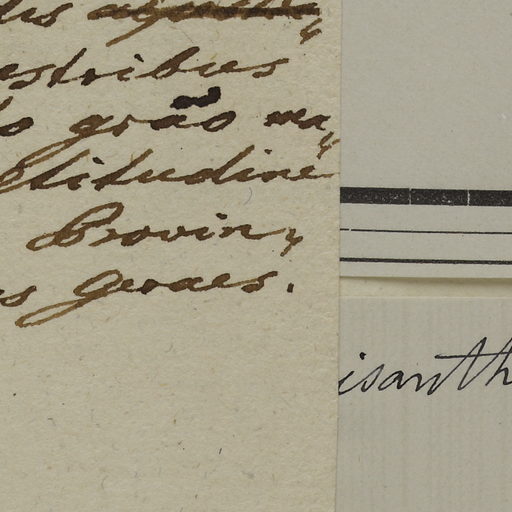 estribus
grão ma,
ltitudine
Provin,
s geraes.
isanth